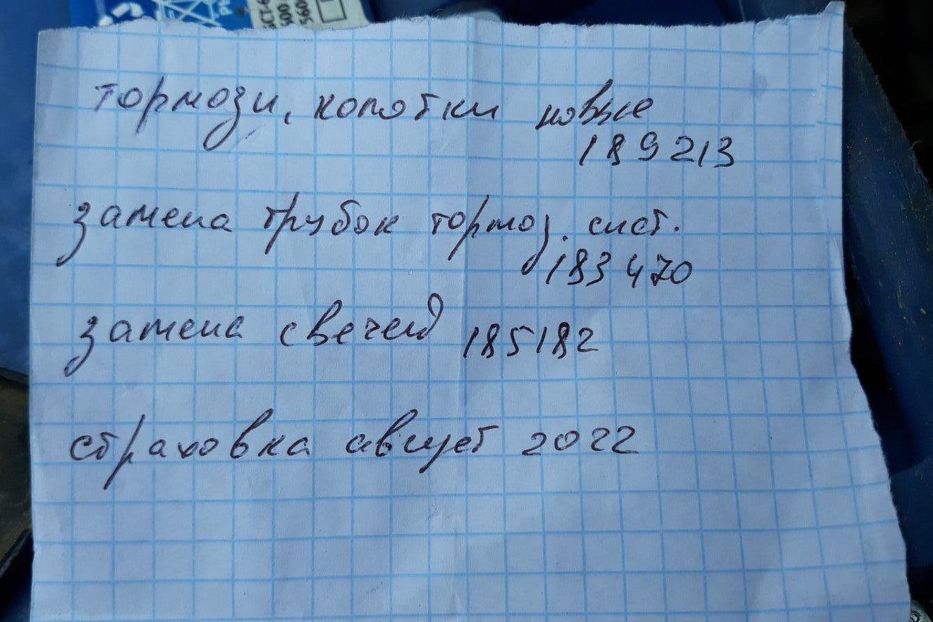 СТ-6
500
560
тормози, колотки новые
189213
замена трубок тормоз. сист.
183470
замена свечей 185182
страховка август 2022